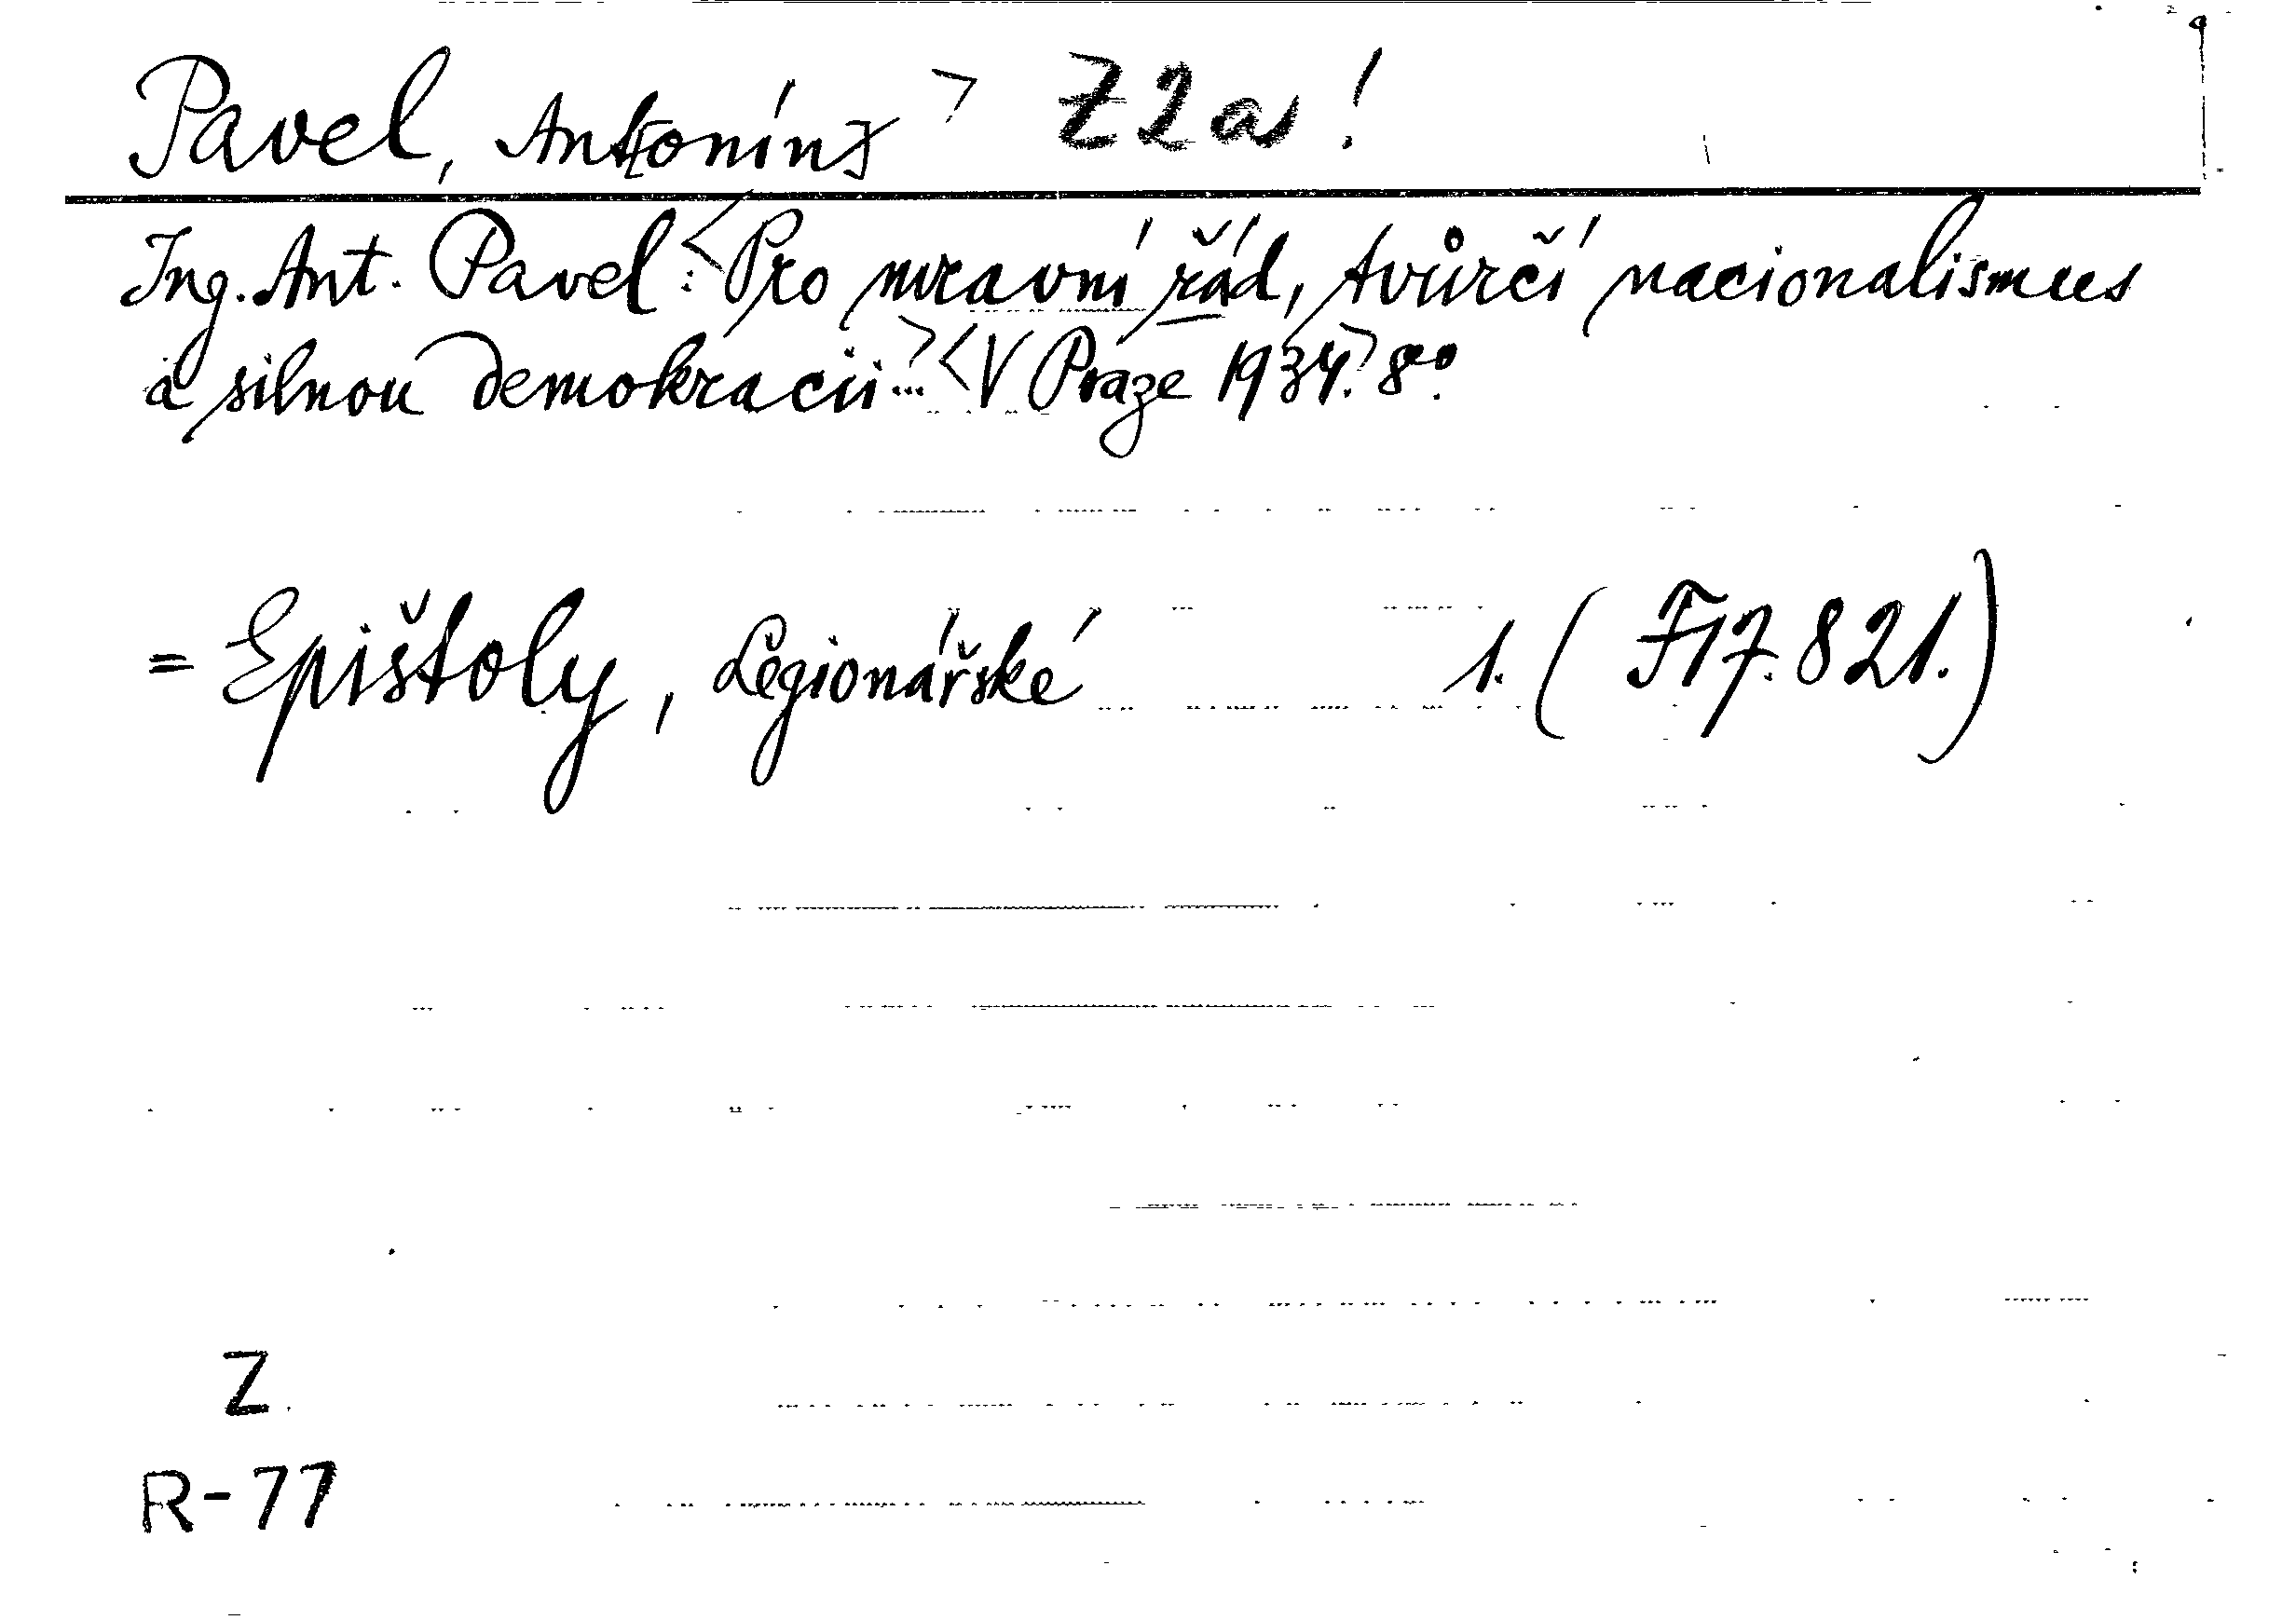 Pavel, Ant[onín] > Z2as!
Ing. Ant. Pavel: <Pro mravní řád, tvůrčí nacionalismus
a silnou demokracii...> <V Praze 1934.> 8°.
= Epištoly, Legionářské 1. (F 17.821.)
Z
R-77